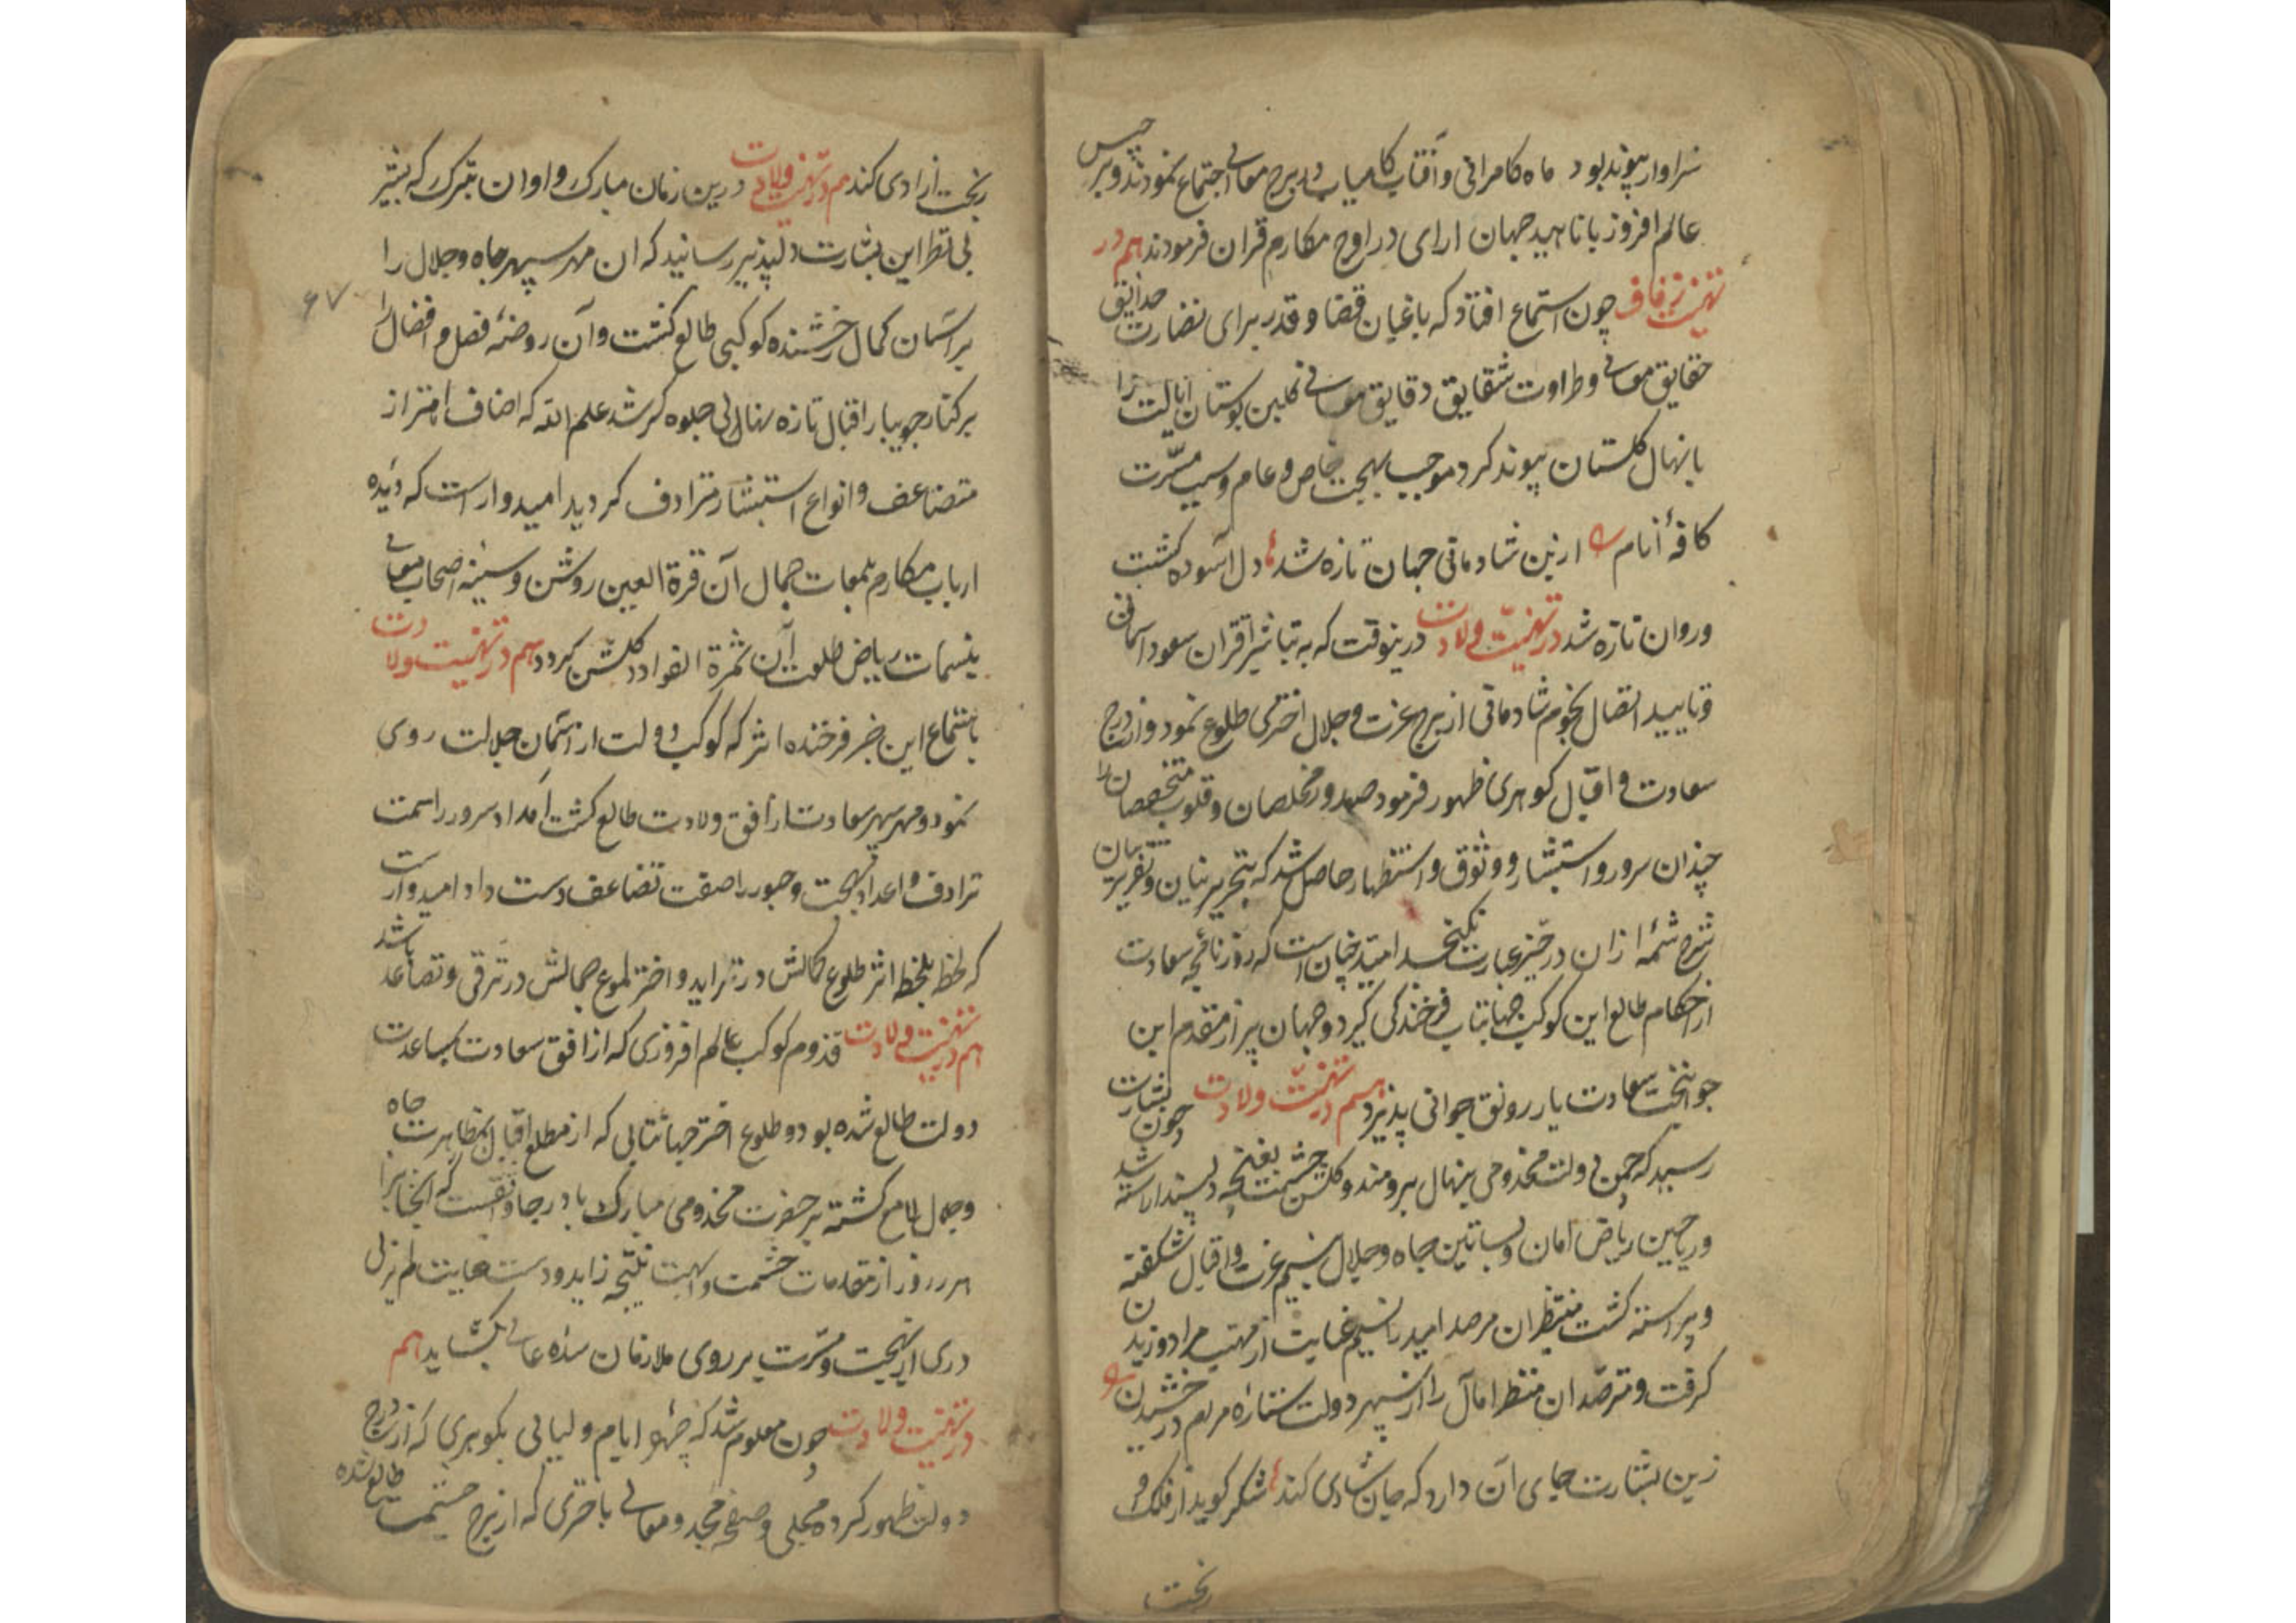 سزاوار پیوند بود ماه کامرانی و آفتاب کامیاب در برج معالی اجتماع نمودند و برجیس
عالم افروز با ناهید جهان ارای در اوج مکارم قران فرمودند هم در
تهنیت زفاف چون استماع افتاد که باغبان قضا و قدر برای نضارت حدایق
حقایق معالی و طراوت شقایق دقایق معانی گلبن بوستان ایالت را
با نهال گلستان پیوند کرد موجب بهجت خاص و عام و سبب مسرت
کافهٔ انام ازین شادمانی جهان تازه شد دل آسوده گشت
و روان تازه شد در تهنیت ولادت درینوقت که به تباشیر اقتران سعود آسمان
و تایید اتصال نجوم شادمانی از برج عزت و جلال اختری طلوع نمود و از درج
سعادت و اقبال گوهری ظهور فرمود صدور مخلصان و قلوب متخصصان را
چندان سرور و استبشار و وثوق و استظهار حاصل شد که بتحریر بنان و تقریر بیان
شرح شمهٔ ازان در حیز عبارت نگنجد امید چنان است که روزنامچه سعادت
از احکام طالع این کوکب جهانتاب فرخندگی گیرد و جهان پیر از مقدم این
جوانبخت سعادت یار رونق جوانی پذیرد هم در تهنیت ولادت چون بشارت
رسید که چمن دولت مخدومی بنهال برومند و گلشن حشمت بغنچه دلپسند اراسته شد
و ریاحین ریاض امان و بساتین جاه و جلال بنسیم عزت و اقبال شکفته
و پیراسته گشت منتظران مرصد امید را نسیم عنایت از مهب مراد وزیدن
گرفت و مترصدان منتظر امال را از سپهر دولت ستاره مراد درخشیدن
زین بشارت جای ان دارد که جان شادی کند شکر گوید از فلک و
بخت
بخت ازادی کند هم در تهنیت ولادت درین زمان مبارک و اوان متبرک که بشیر
این بشارت دلپذیر رسانید که ان مهر سپهر جاه و جلال را
بر اسمان کمال رخشنده کوکبی طالع گشت و آن روضهٔ فضل و افضال را
بر کنار جویبار اقبال تازه نهالی جلوه گر شد علم الله که اصناف اهتزاز
متضاعف و انواع استبشار مترادف گردید امیدوارست که دیده
ارباب مکارم بلمعات جمال آن قرة العین روشن و سینه اصحاب معالی
بنسمات ریاض طلعت آن ثمرة الفواد گلشن گردد هم در تهنیت ولادت
باستماع این خبر فرخنده اثر که کوکب دولت از آسمان جلالت روی
نمود و مهر سپهر سعادت از افق ولادت طالع گشت امداد سرور را سمت
ترادف و اعداد بهجت و حبور را صفت تضاعف دست داد امیدوارست
که لحظه بلحظه اثر طلوع کمالش در تزاید و اختر لموع جمالش در ترقی و تصاعد باشد
هم در تهنیت ولادت قدوم کوکب عالم افروزی که از افق سعادت بمساعدت
دولت طالع شده بود و طلوع اختر جهانتابی که از مطلع اقبال بمظاهرت جاه
و جلال لامع گشته بر حضرت مخدومی مبارک باد رجا واثقست که انجناب را
هر روز از مقدمات حشمت و ابهت نتیجه زاید و دست عنایت لم یزلی
دری از بهجت و مسرت بر روی ملازمان سده عالی بگشاید هم
در تهنیت ولادت چون معلوم شد که چهره ایام و لیالی بگوهری که از درج
دولت ظهور کرده محلی و صفحه مجد و معالی باختری که از برج حشمت طالع شده
۶۷